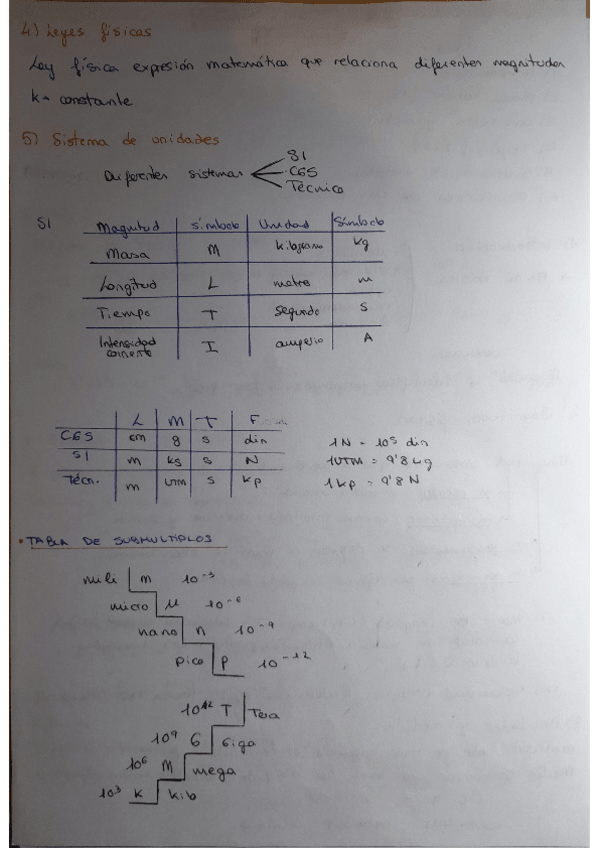 4) Leyes físicas
Ley física expresión matemática que relaciona diferentes magnitudes
k = constante
5) Sistema de unidades
Diferentes sistemas
SI
CGS
Técnico
SI
Magnitud símbolo Unidad Símbolo
Masa M kilogramo kg
Longitud L metro m
Tiempo T segundo s
Intensidad corriente I amperio A
L M T F
CGS cm g s din
SI m kg s N
Técn. m UTM s kp
1N = 10⁵ din
1UTM = 9'8 kg
1kp = 9'8 N
• TABLA DE SUBMULTIPLOS
mili m 10⁻³
micro μ 10⁻⁶
nano n 10⁻⁹
pico p 10⁻¹²
10¹² T Tera
10⁹ G Giga
10⁶ M mega
10³ k kilo